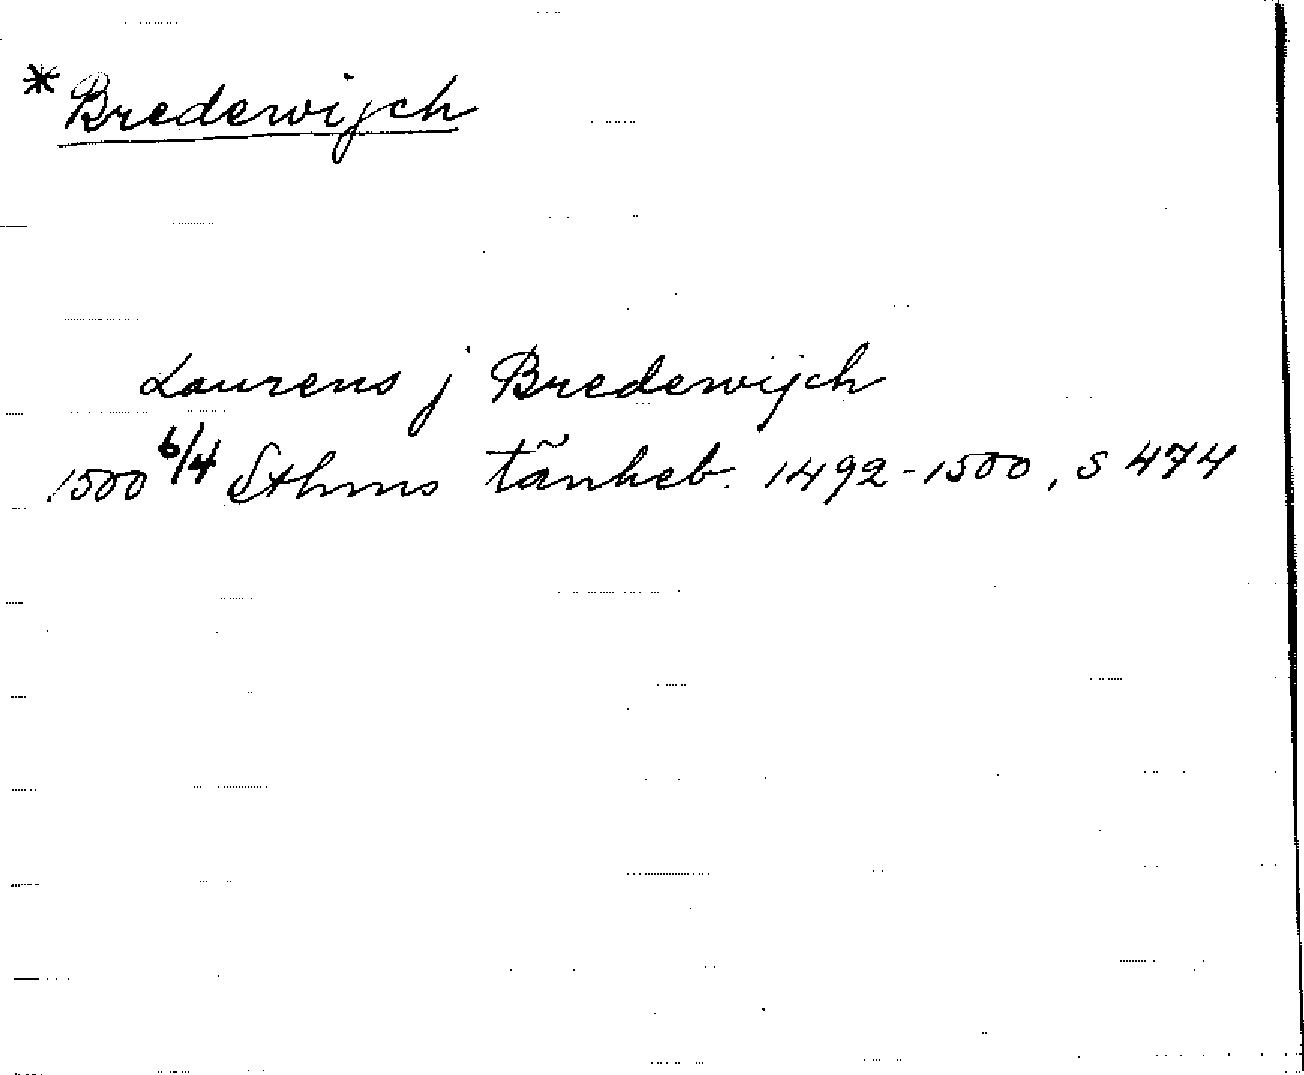 *Brederwijch
Laurens j Bredewijch
1500 6/4 Sthms tänkeb. 1492-1500, s 474